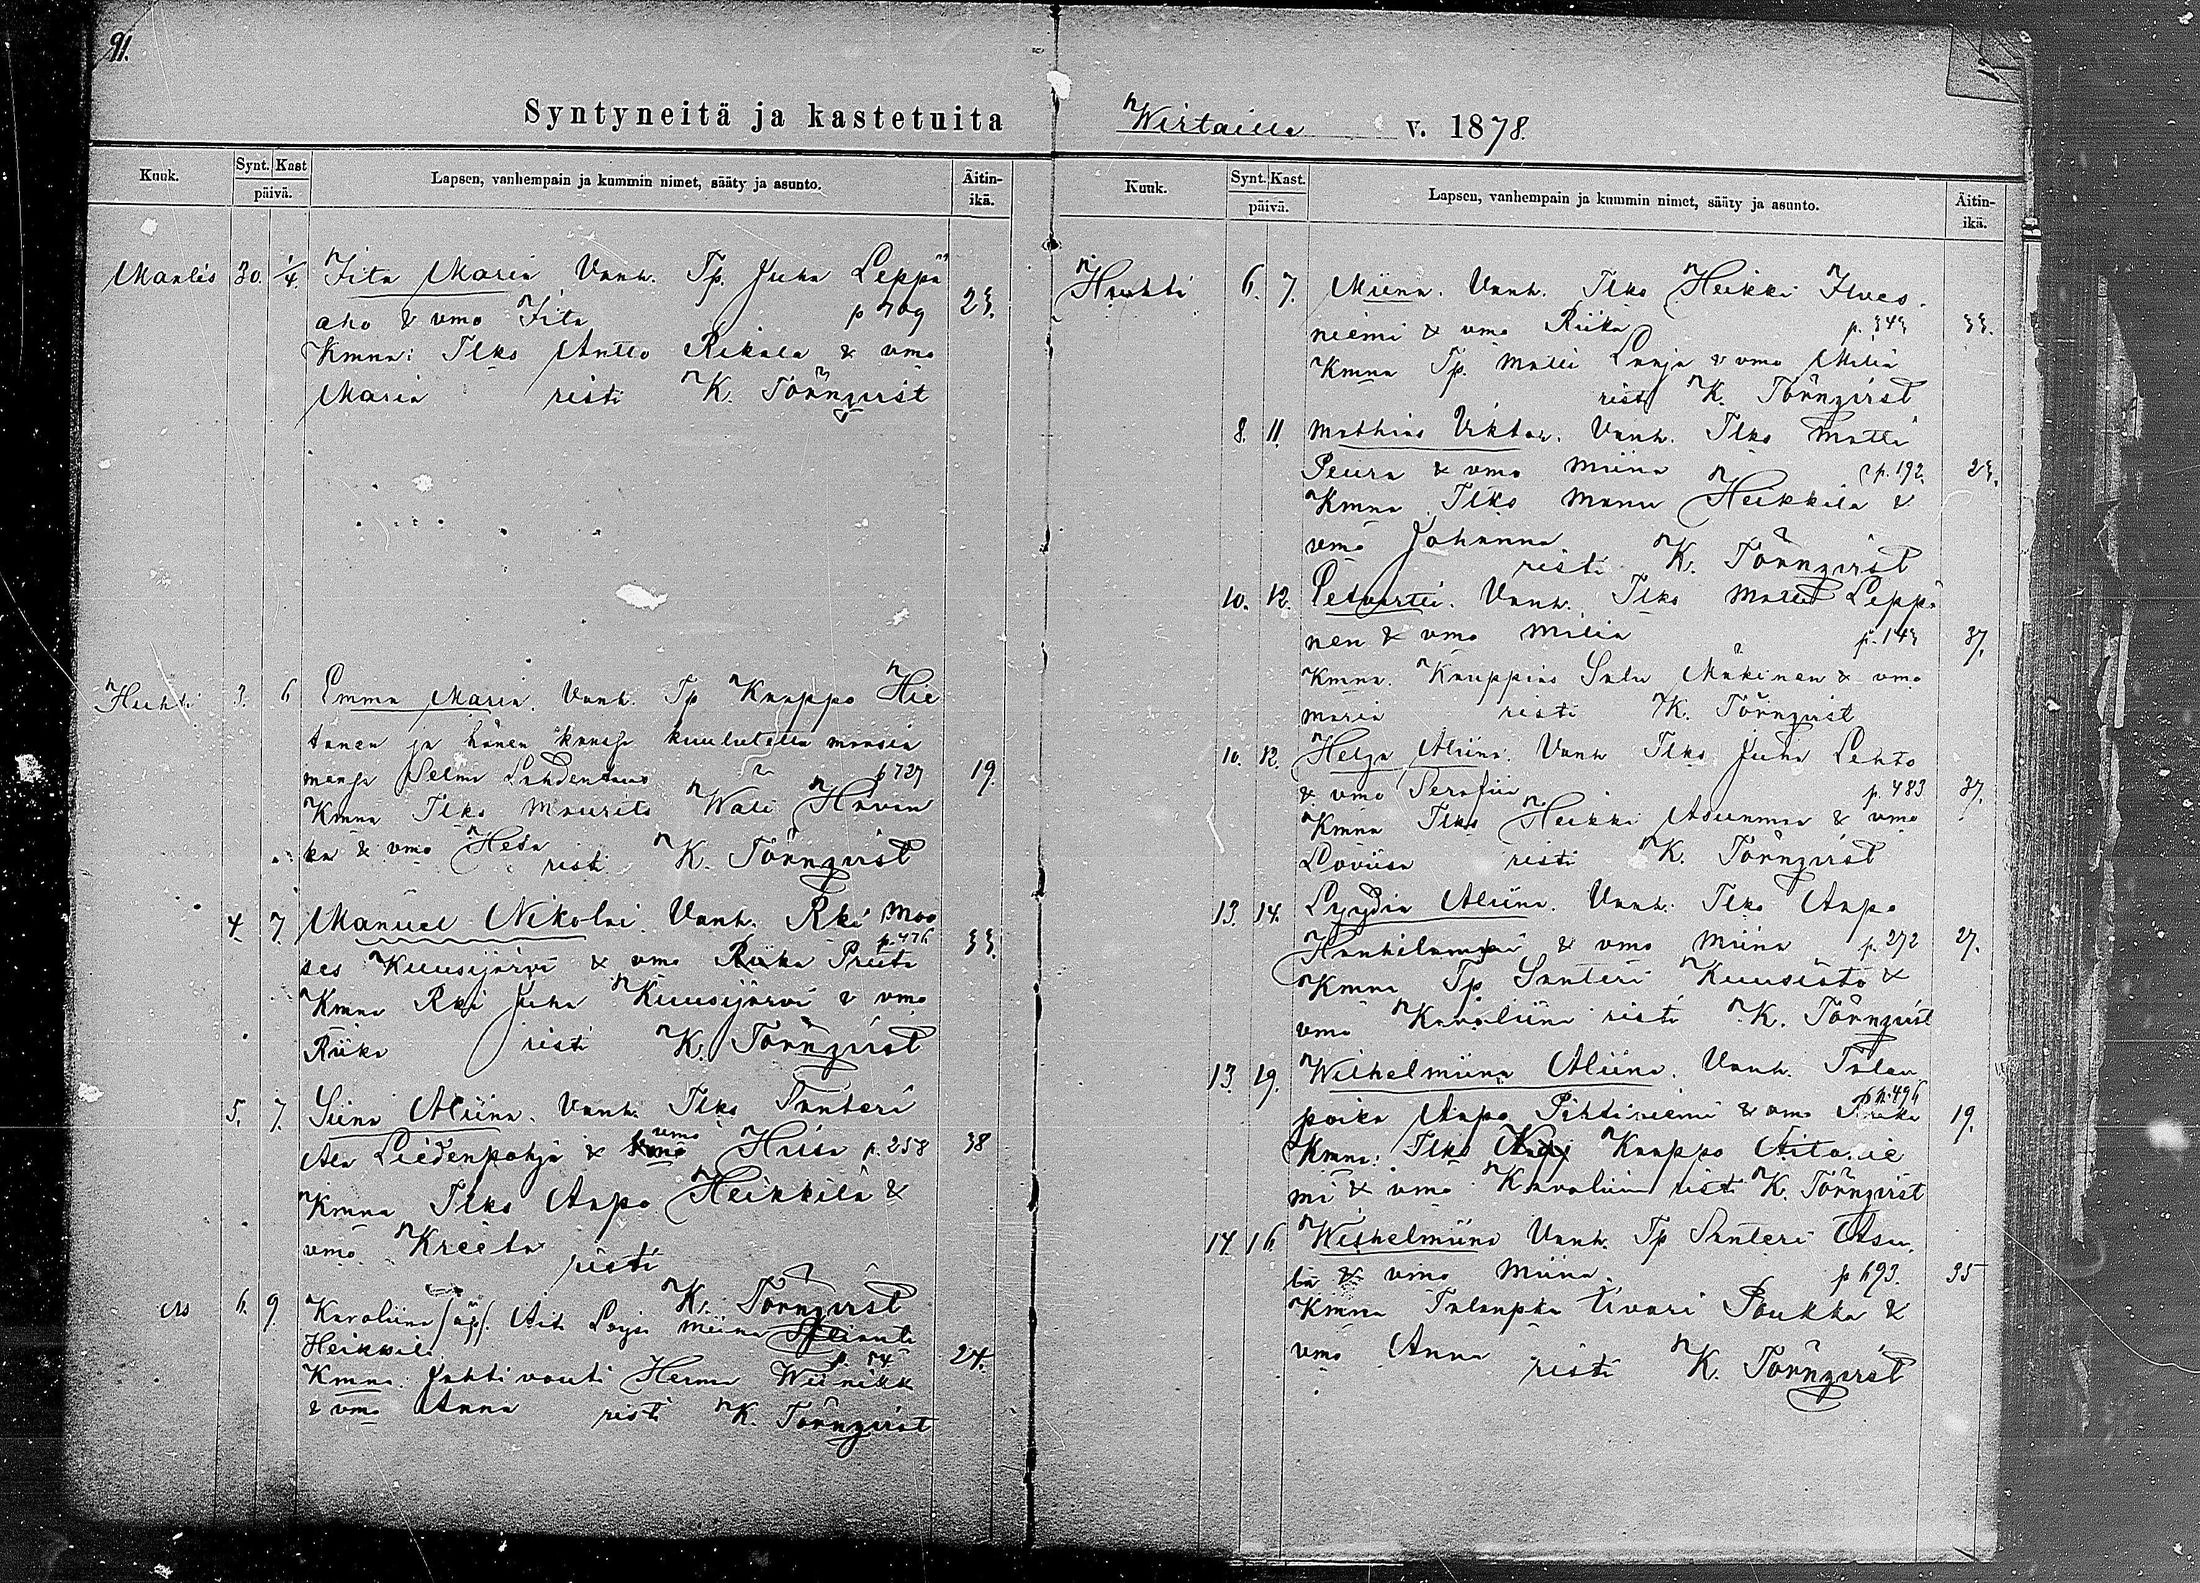 91.
Syntyneitä ja kastetuita
Kuuk. Synt. Kast päivä. Lapsen, vanhempain ja kummin nimet, sääty ja asunto. Äitin-ikä.
Maalis 30. 1/4. Fita Maria Vanh. Tp. Juha Leppä
aho & vmo Fita p 709 23.
Kmna: Tlks Antto Rikala & vmo
Maria risti K. Törnqvist
Huhti 3. 6 Emma Maria. Vanh. Tp Kaappo Hie
tanen ja hänen kanssa kuulutettu morsia
mensa Selma p 727 19.
Kmna Tlks Maurits Wali
ka & vmo Heda risti K. Törnqvist
4. 7. Manuel Nikolai. Vanh. Rki Moo
ses Kuusijärvi & vmo Riika Priita p. 476 33.
Kmna Rki Juha Kuusijärvi & vmo
Riika risti K. Törnqvist
5. 7. Siina Aliina. Vanh. Tlks Santeri
Ala Liedenpohja & vmo Heisa p. 258 38
Kmna Tlks Aapo Heikkilä &
vmo Kreeta risti
K. Törnqvist
6. 9. Karoliina (äp). Äiti Loysi Miina
Heikkilä p. 54 24.
Kmna: Jahtivouti Herma Wiinikk
& vmo Anna risti K. Törnqvist
Wirtailla v. 1878.
Kuuk. Synt. Kast. päivä. Lapsen, vanhempain ja kummin nimet, sääty ja asunto. Äitin-ikä.
Huhti 6. 7. Miina. Vanh. Tlks Heikki Ilves.
niemi & vmo Riika p. 343 33.
Kmna Tp. Matti Lanja & vmo Milia
risti K. Törnqvist
8. 11. Mathias Viktor. Vanh. Tlks Matti
Peura & vmo Miina p. 192. 23.
Kmna Tlks Manu Heikkilä &
vmo Johanna risti K. Törnqvist
10. 12. Vanh. Tlks Matti Leppä
nen & vmo Milia p. 143 37.
Kmna. Kauppias Salu Mäkinen & vmo
Maria risti K. Törnqvist
10. 12. Helga Aliina. Vanh Tlks Juha Lehto
& vmo Serafiia p. 483 37.
Kmna Tlks Heikki Asunmaa & vmo
Loviisa risti K. Törnqvist
13. 14. Lyydia Aliina. Vanh. Tlks Aapo
Hanhilammi & vmo Miina p. 272 27.
Kmna Tp Santeri Kuusisto &
vmo Karoliina risti K. Törnqvist
13. 19. Wilhelmiina Aliina. Vanh. Talon
poika Aapo Pihtiniemi & vmo Riika p. 496 19.
Kmna: Tlks Kaappo Aitonie
mi & vmo Karoliina risti K. Törnqvist
14. 16. Wilhelmiina Vanh. Tp Santeri Asu.
la & vmo Miina. p 693. 35
Kmna Talonpka Iivari Poukka &
vmo Anna risti K. Törnqvist